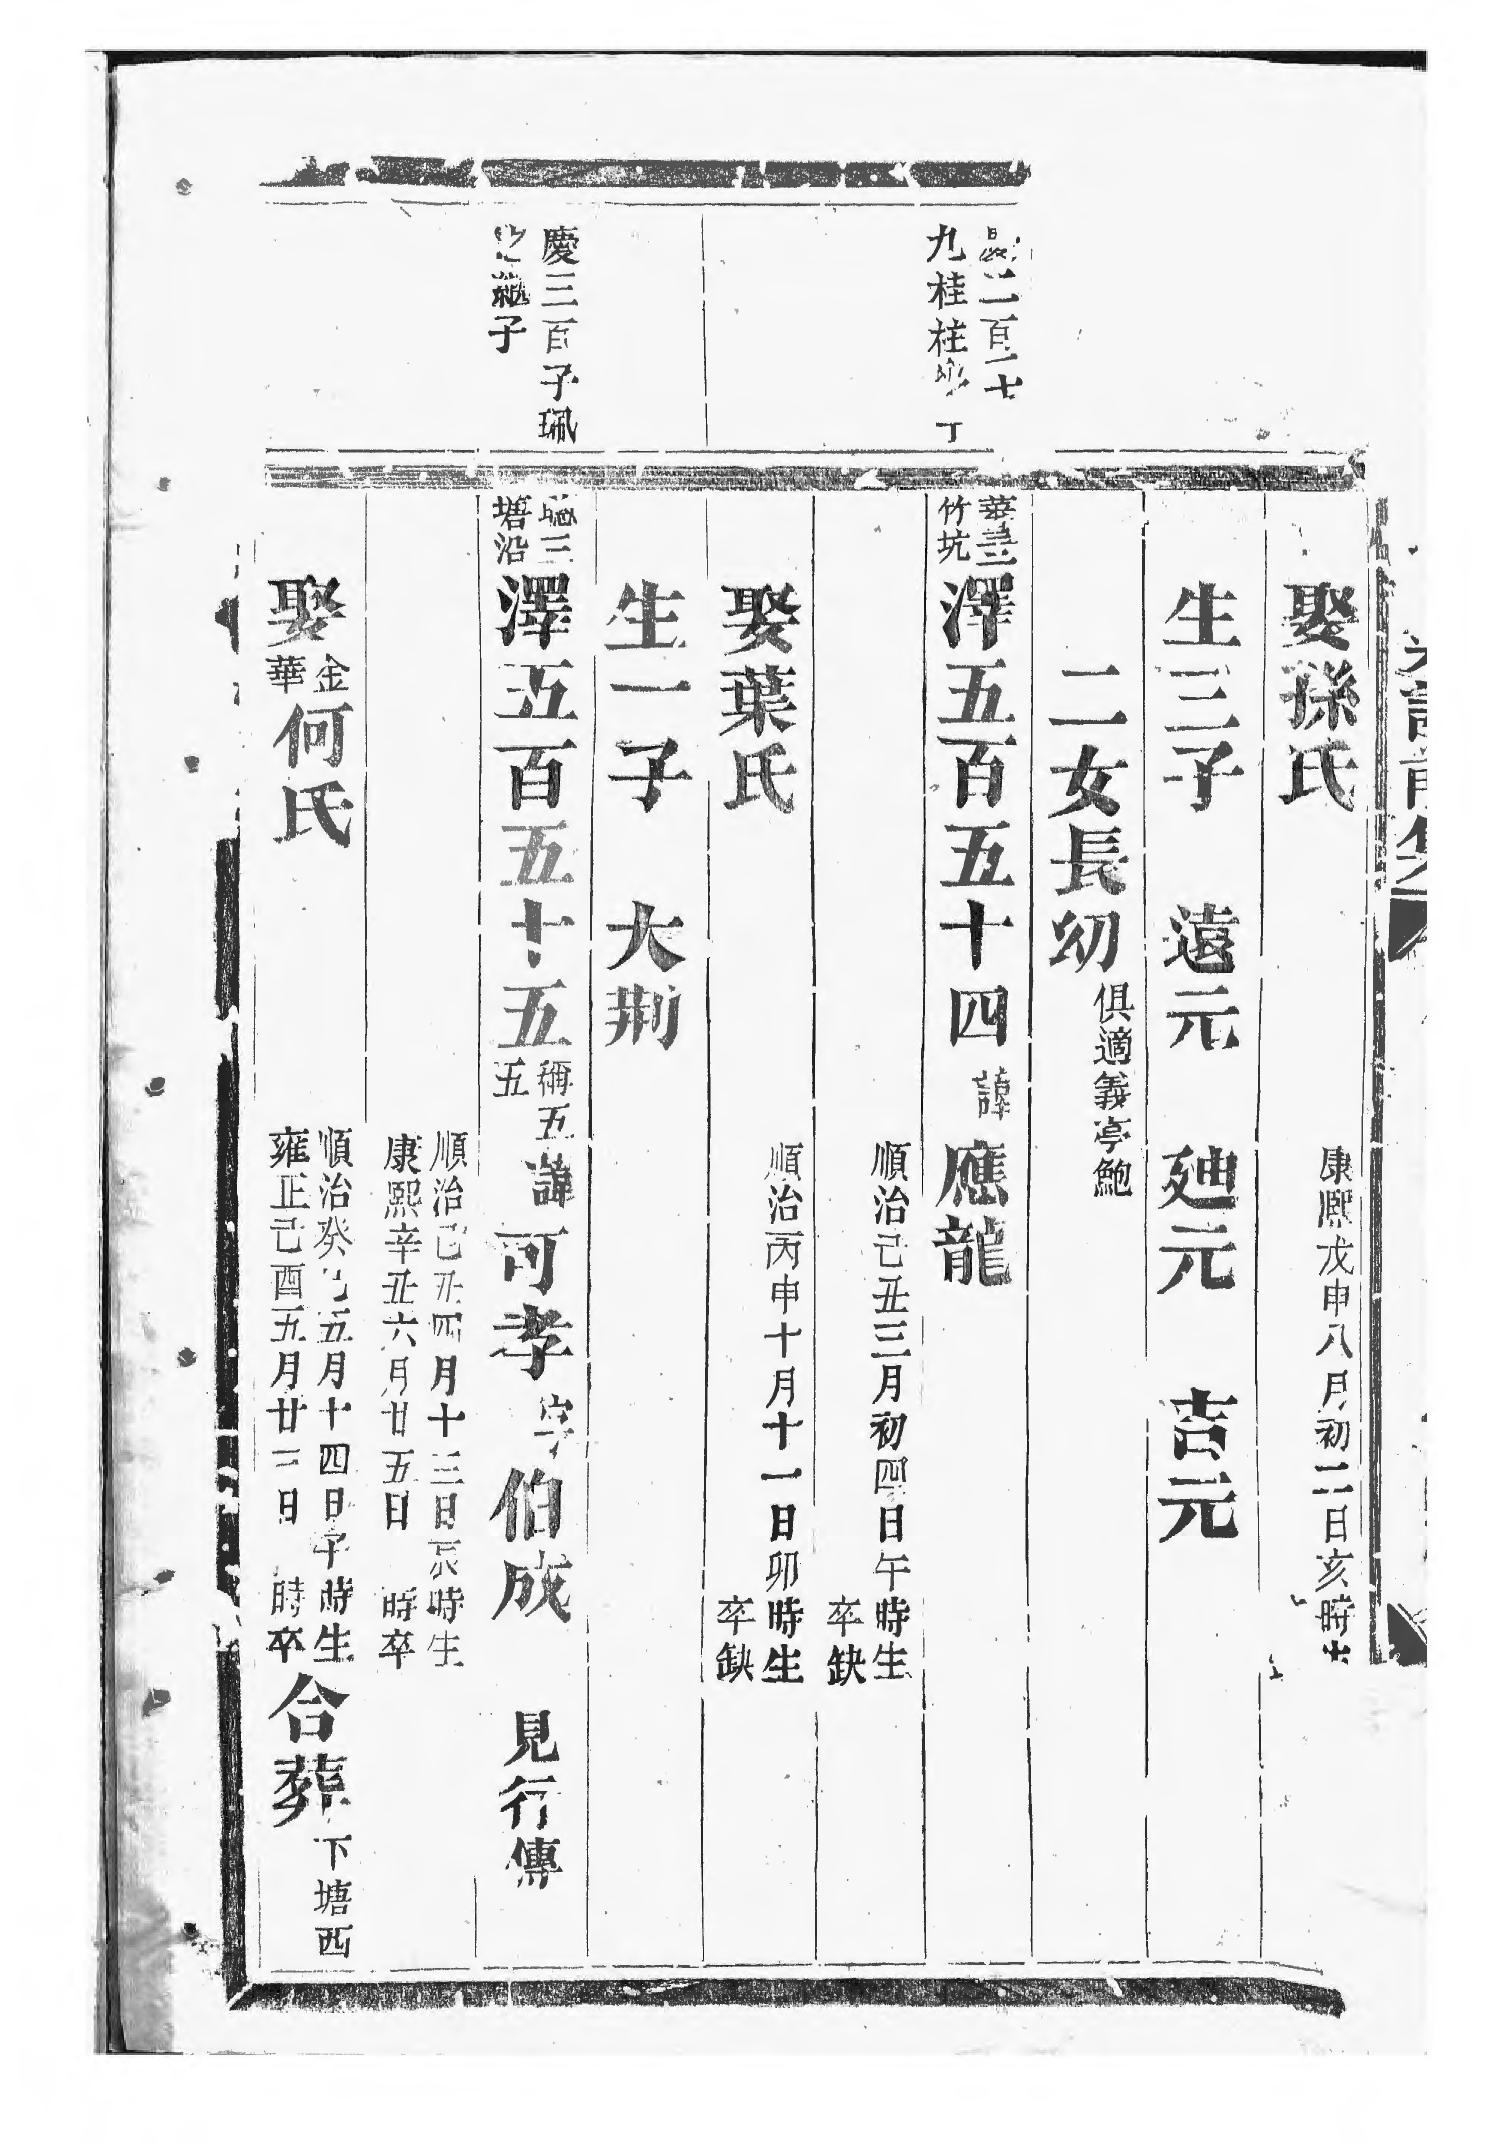 娶孫氏
康熙戊申八月初二日亥時生
生三子 遠元 廸元 吉元
二女長幼
俱適義亭鮑
二百二十
九桂柱 丁
竹坑
澤五百五十四 諱 應龍
順治己丑三月初四日午時生
卒缺
娶葉氏
順治丙申十月十一日卯時生
卒缺
生一子 大荆
慶三百子珮
繼子
塘沿
澤五百五十五
稱五
五
諱可孝 字伯成 見行傳
順治己丑四月十三日辰時生
康熙辛丑六月廿五日 時卒
娶
金
華
何氏
順治癸巳五月十四日子時生
雍正己酉五月廿三日 時卒
合葬
下塘西